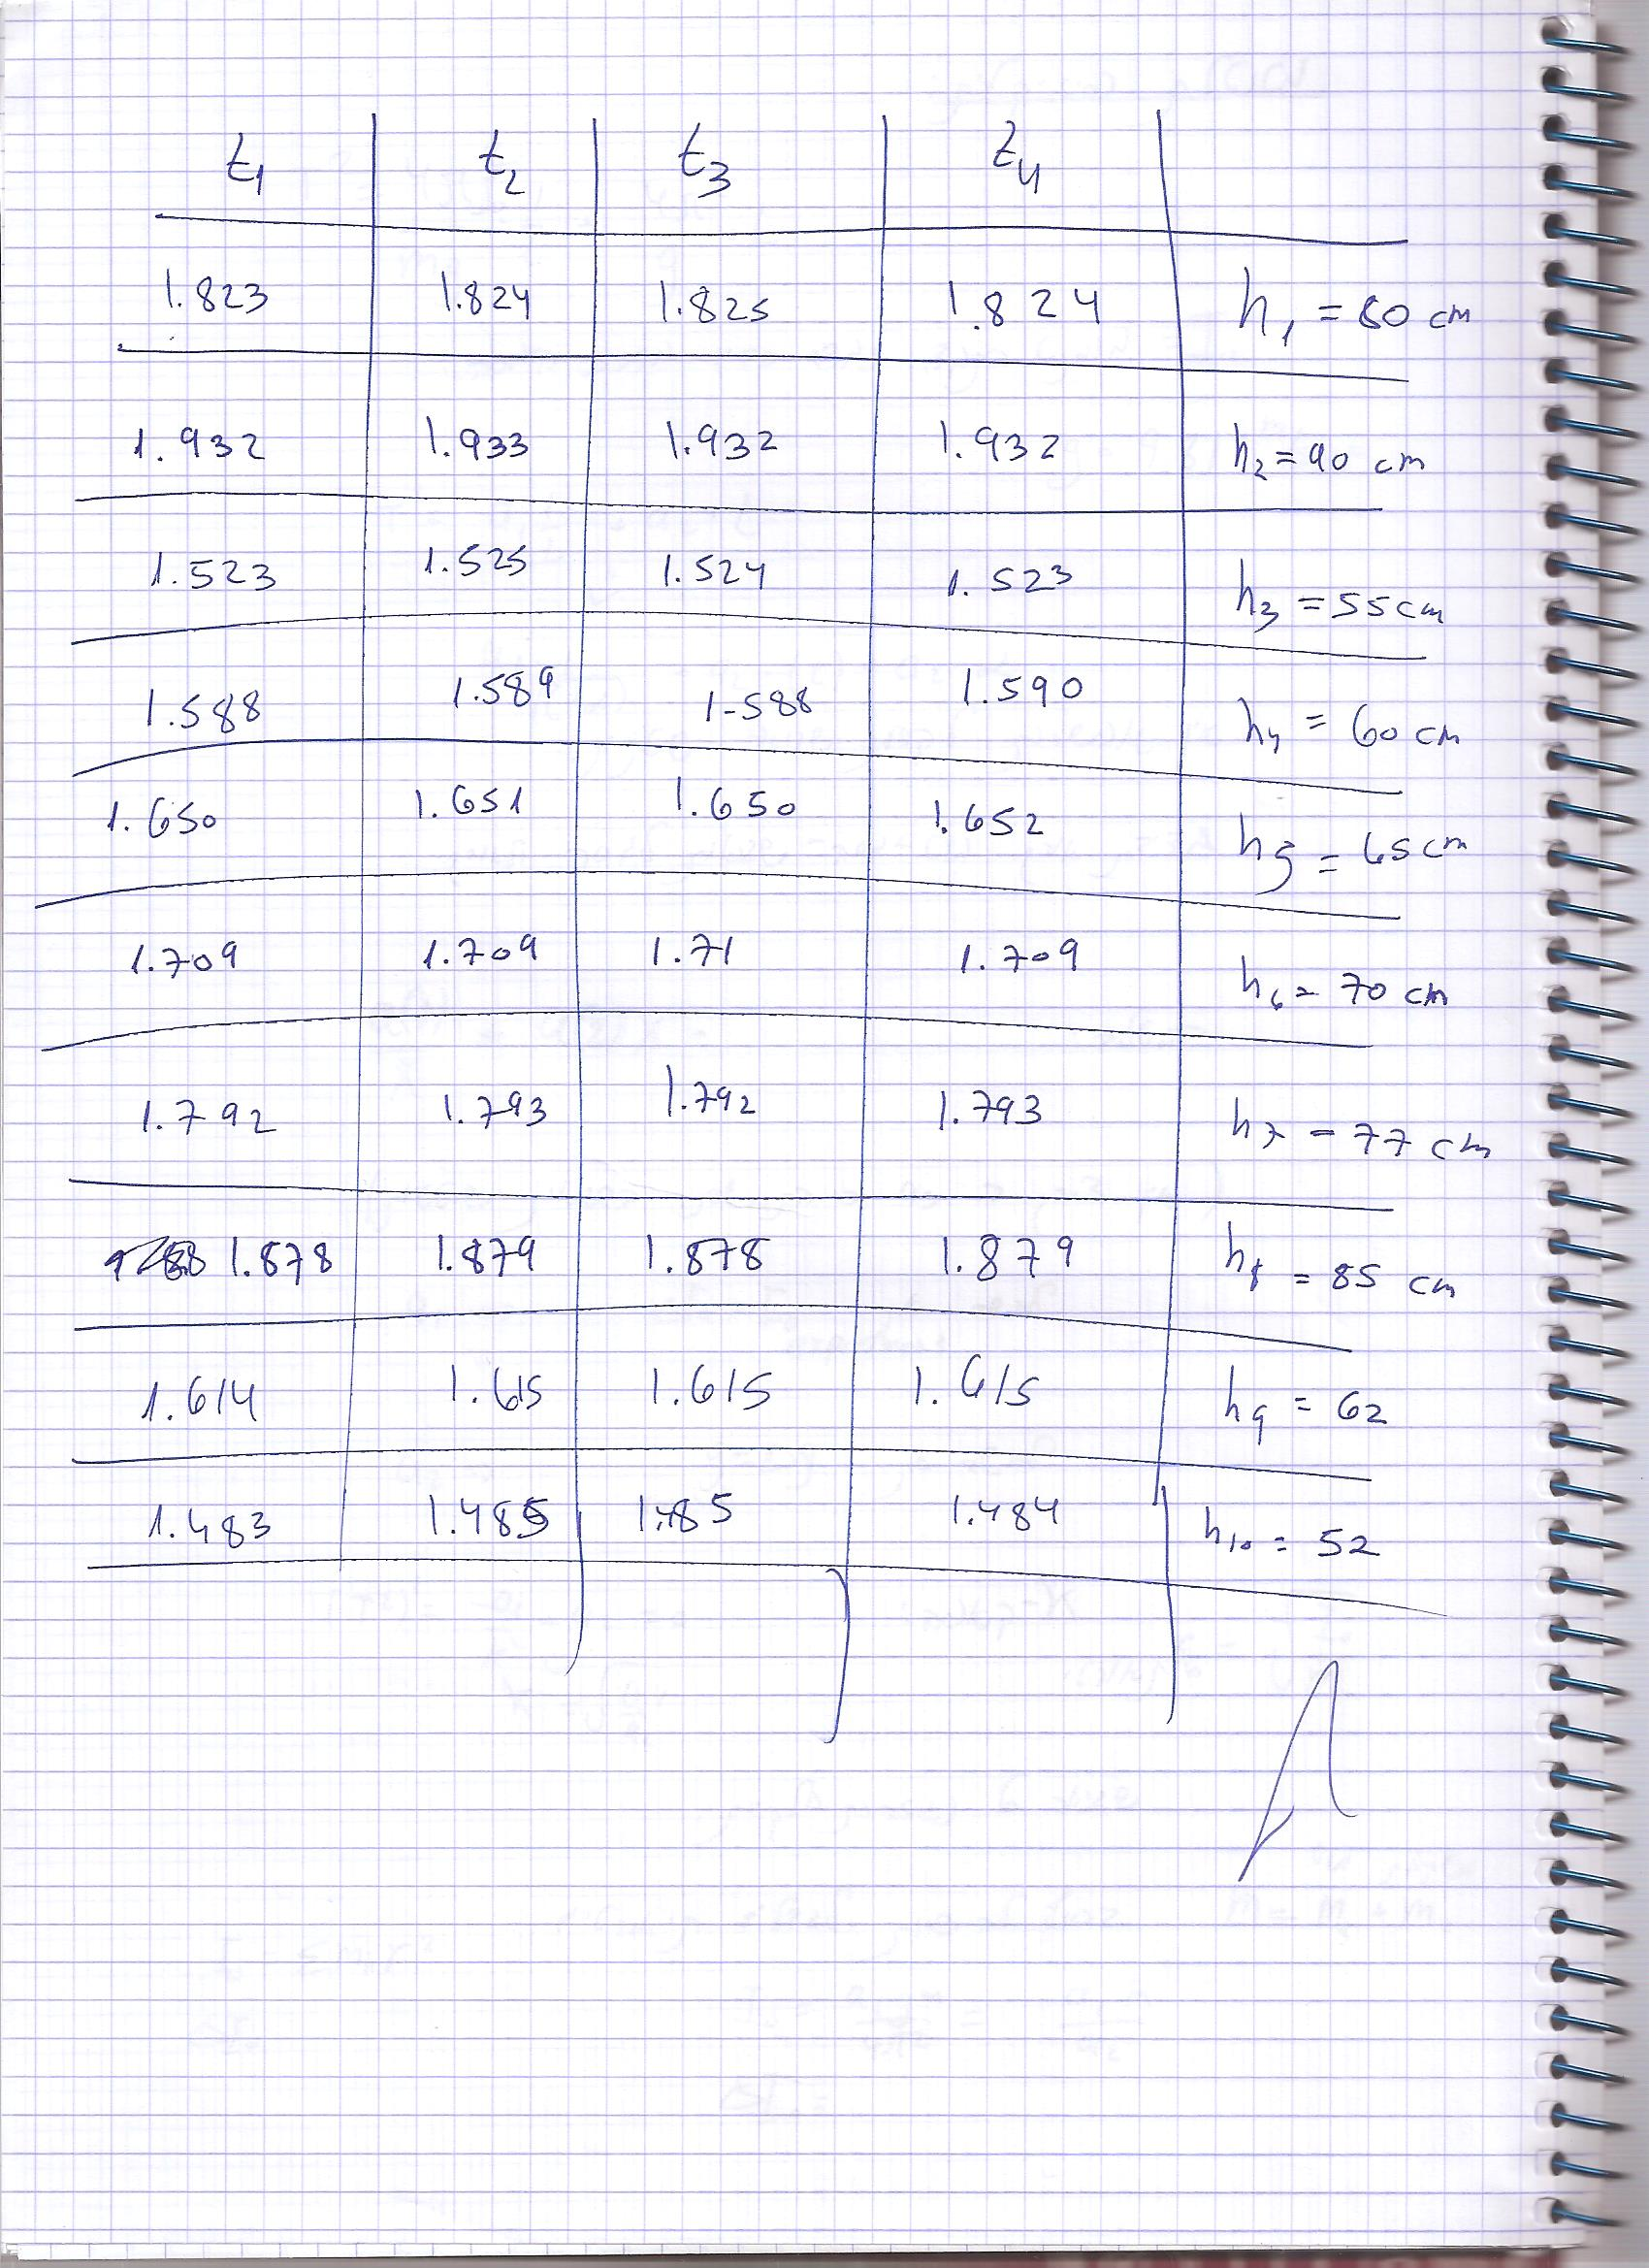 t1 t2 t3 t4
1.823 1.824 1.825 1.824 h1 = 80 cm
1.932 1.933 1.932 1.932 h2 = 90 cm
1.523 1.525 1.524 1.523 h3 = 55 cm
1.588 1.589 1-588 1.590 h4 = 60 cm
1.650 1.651 1.650 1.652 h5 = 65 cm
1.709 1.709 1.71 1.709 h6 = 70 cm
1.792 1.793 1.792 1.793 h7 = 77 cm
1.878 1.879 1.878 1.879 h8 = 85 cm
1.614 1.615 1.615 1.615 h9 = 62
1.483 1.485 1.485 1.484 h10 = 52